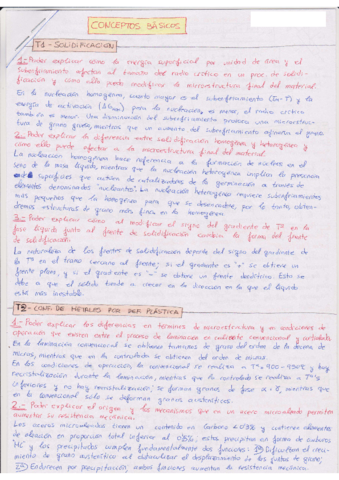 CONCEPTOS BÁSICOS
T1 - SOLIDIFICACIÓN
1- Poder explicar cómo la energía superficial por unidad de área y el
subenfriamiento afectan al tamaño del radio crítico en un proc. de solidi-
ficación y cómo ello puede modificar la microestructura final del material.
En la nucleación homogénea, cuanto mayor es el subenfriamiento y la
energía de activación para la nucleación, es menor, el radio crítico
también es menor. Una disminución del subenfriamiento produce una microestruc-
tura de grano grande, mientras que un aumento del subenfriamiento refinará el grano.
2- Poder explicar la diferencia entre solidificación homogénea y heterogénea y
cómo ello puede afectar a la microestructura final del material.
La nucleación homogénea hace referencia a la formación de núcleos en el
seno de la masa líquida, mientras que la nucleación heterogénea implica la presencia
de superficies que actúan de catalizadores de la germinación a través de
elementos denominados "nucleantes". La nucleación heterogénea requiere subenfriamientos
más pequeños que la homogénea para que se desencadene, por lo tanto, obten-
dremos estructuras de grano más fino en la homogénea.
3- Poder explicar cómo al modificar el signo del gradiente de Tª en la
fase líquida junto al frente de solidificación cambia la forma del frente
de solidificación.
La naturaleza de los frentes de solidificación depende del signo del gradiente
de la Tª en el tramo cercano al frente: si el gradiente es "+" se obtiene un
frente plano, y si el gradiente es "-" se obtiene un frente dendrítico. Esto se
debe a que el sólido tiende a crecer en la dirección en la que el líquido
esté más inestable.
T2 - CONF. DE METALES POR DEF. PLÁSTICA
1- Poder explicar las diferencias en términos de microestructura y en condiciones de
operación que existen entre el proceso de laminación en caliente convencional y controlado
En la laminación convencional se obtienen tamaños de grano del orden de la decena de
micras, mientras que en la controlada se obtienen del orden de micra.
En las condiciones de operación, la convencional se realiza a Tª y hay
recristalización durante la laminación, mientras que la controlada se realiza a Tªs
inferiores y no hay recristalización, se forman granos de fase α, mientras que
en la convencional solo se deforman granos austeníticos.
2- Poder explicar el origen y los mecanismos que en un acero microaleado permiten
aumentar su resistencia mecánica.
Los aceros microaleados tienen un contenido en carbono y contienen elementos
de aleación en proporción total inferior al, estos precipitan en forma de carburos
MC y los precipitados cumplen fundamentalmente dos funciones: 1) Dificultan el creci-
miento de grano austenítico al obstaculizar el desplazamiento de los juntas de grano,
2) Endurecen por precipitación, ambos factores aumentan la resistencia mecánica.